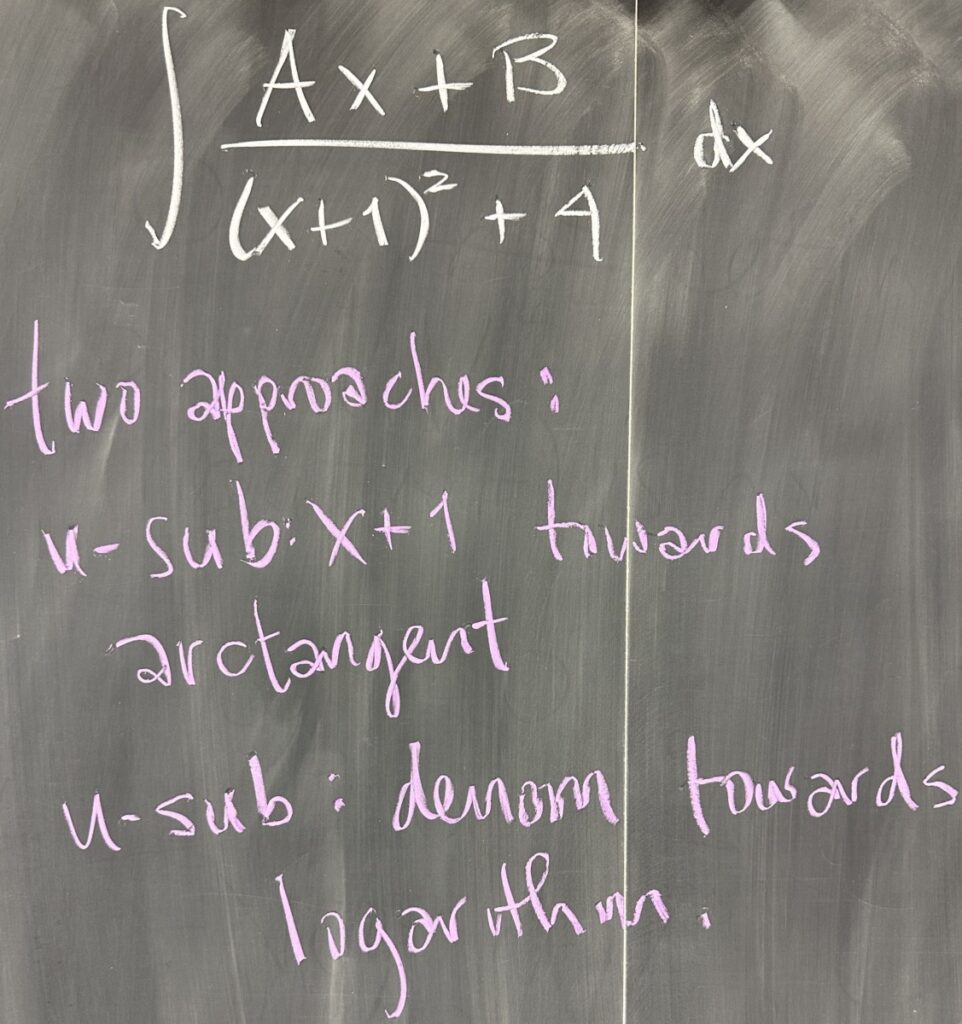 ∫ Ax + B / (x+1)² + 4 dx
two approaches:
u-sub: x+1 towards
arctangent
u-sub: denom towards
logarithm.